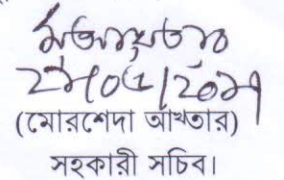 ২৮/০৫/২০১৭
(মোরশেদা আখতার)
সহকারী সচিব।